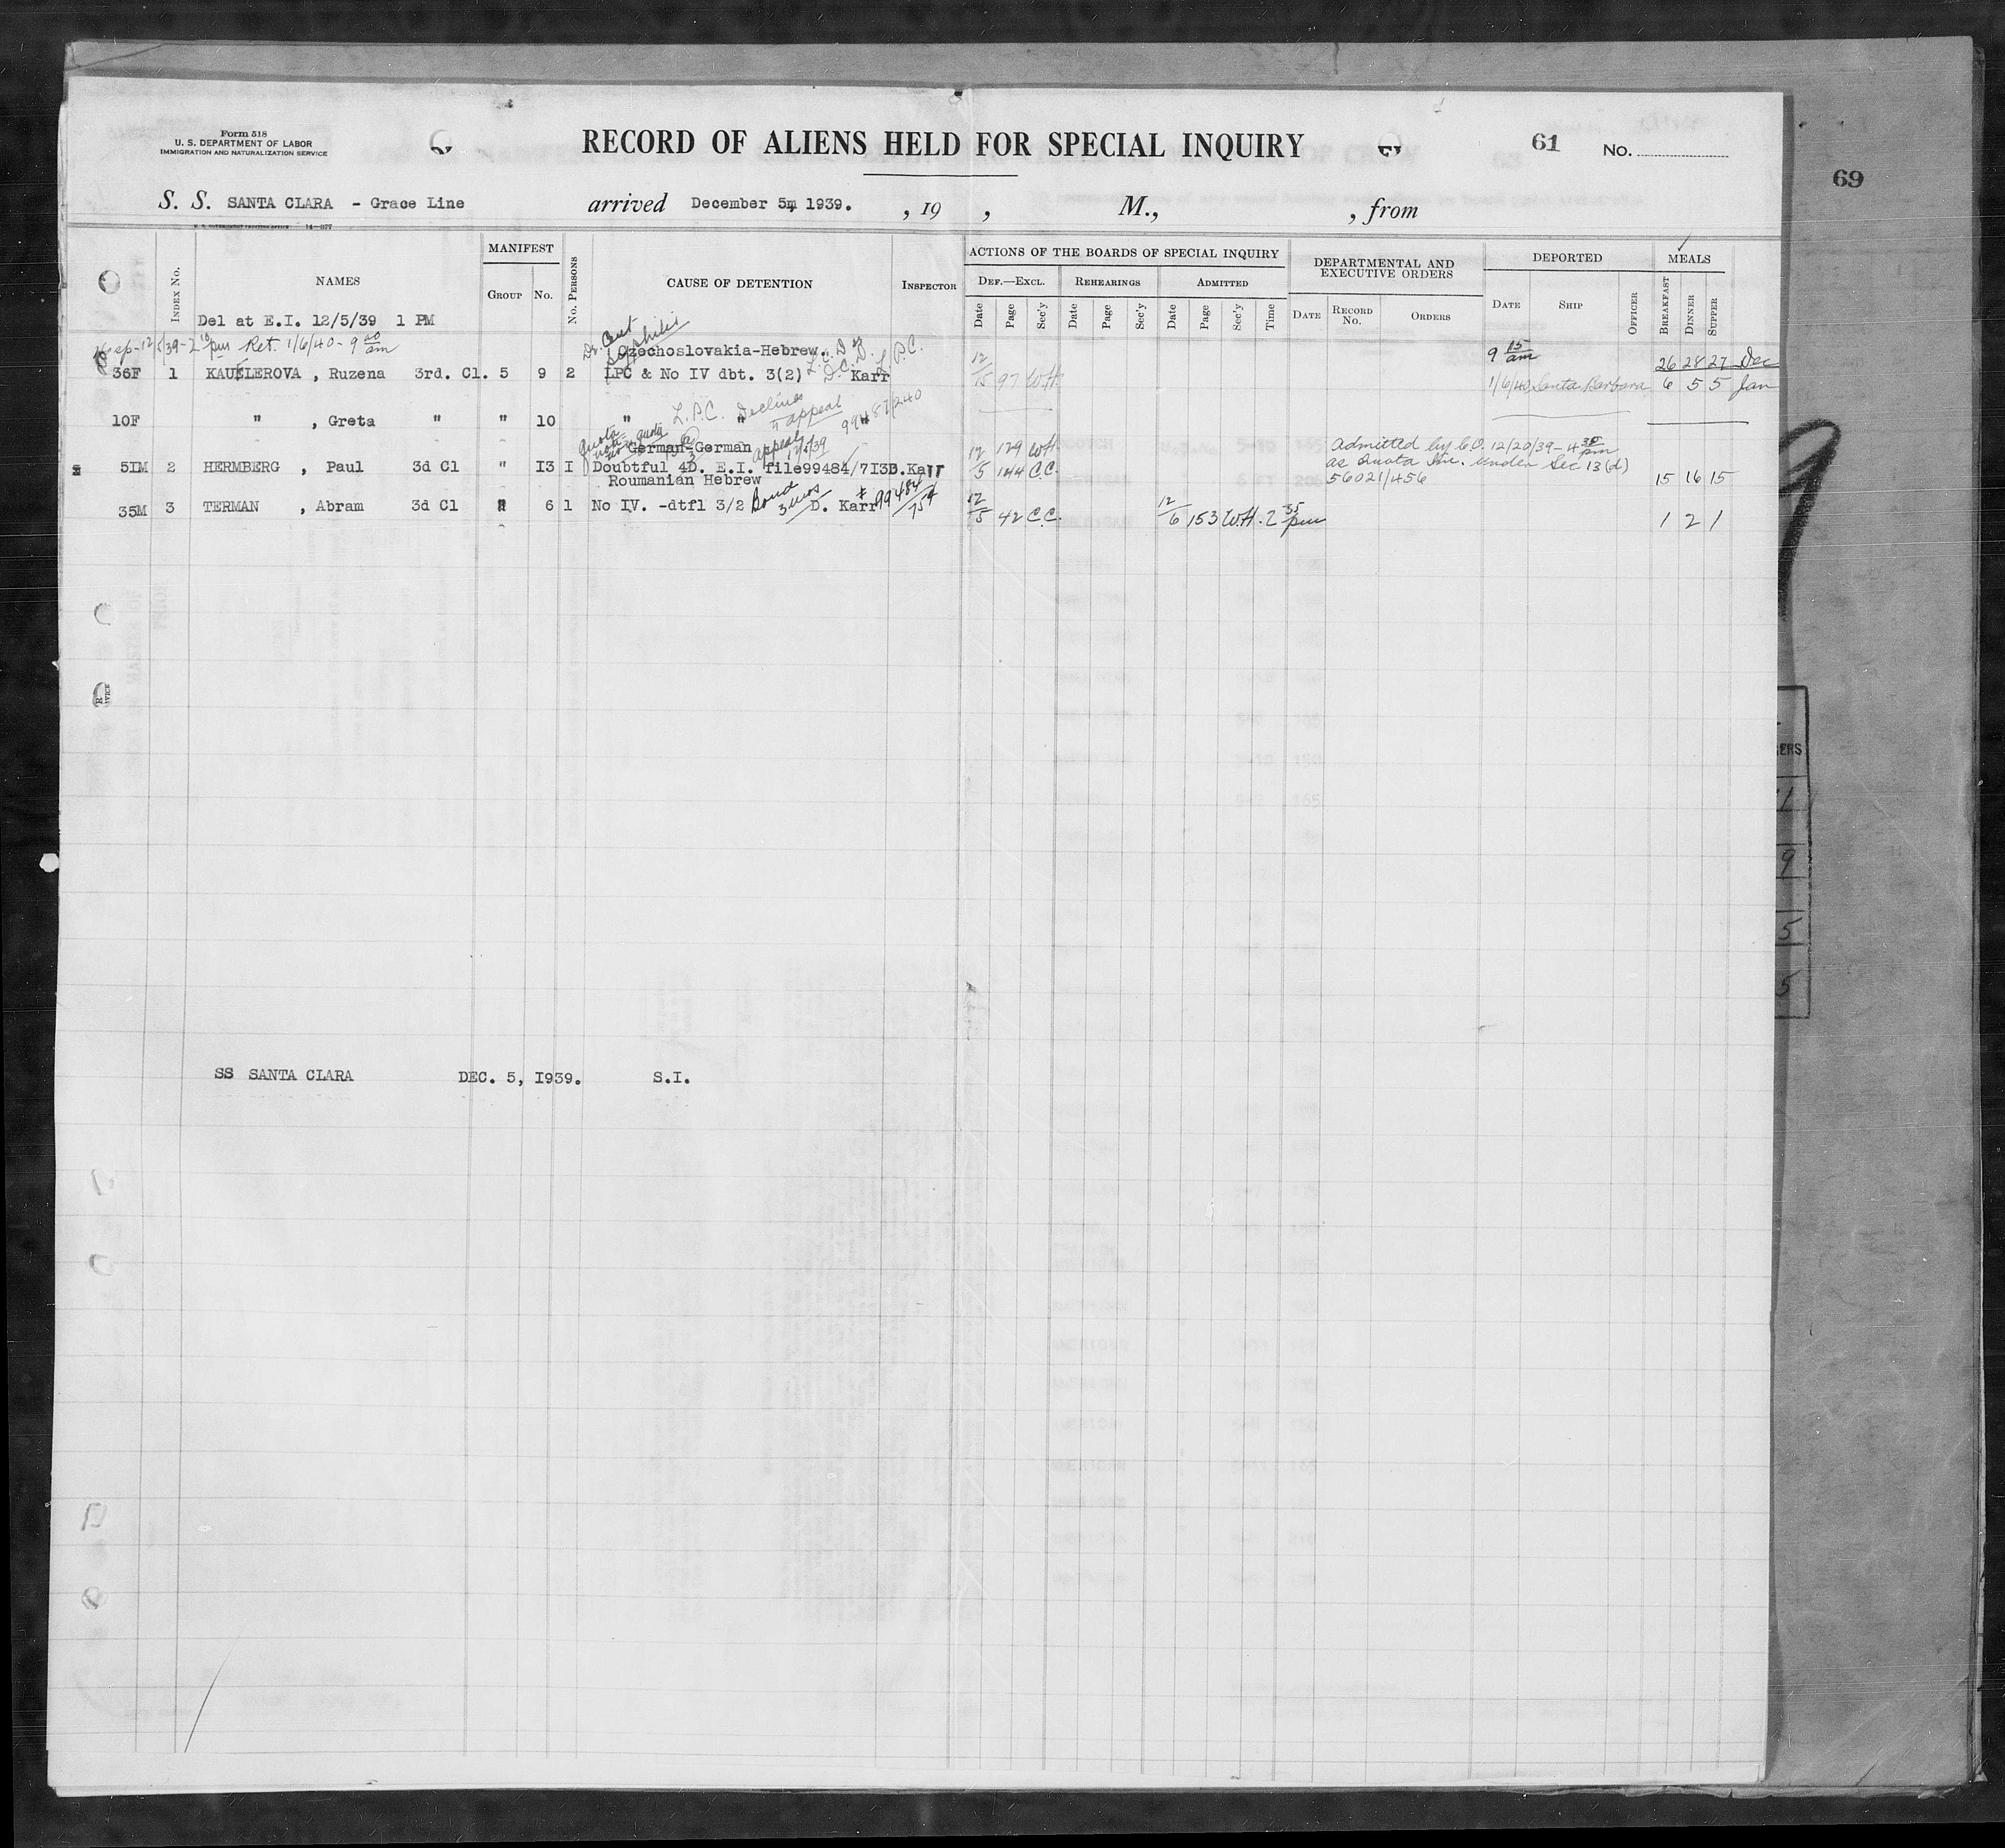 Form 518
U. S. DEPARTMENT OF LABOR
IMMIGRATION AND NATURALIZATION SERVICE
RECORD OF ALIENS HELD FOR SPECIAL INQUIRY
61
No.
69
S. S. SANTA CLARA - Grace Line arrived December 5, 1939. , 19 , M., , from
U. S. GOVERNMENT PRINTING OFFICE 14—877
INDEX No.
NAMES
MANIFEST
GROUP No.
No. PERSONS
CAUSE OF DETENTION
INSPECTOR
ACTIONS OF THE BOARDS OF SPECIAL INQUIRY
DEF.—EXCL. REHEARINGS ADMITTED
Date Page Sec'y Date Page Sec'y Date Page Sec'y Time
DEPARTMENTAL AND EXECUTIVE ORDERS
DATE RECORD No. ORDERS
DEPORTED
DATE SHIP OFFICER
MEALS
BREAKFAST DINNER SUPPER
Del at E.I. 12/5/39 1 PM
Hosp-12/5/39-2 10 pm Ret. 1/6/40-9 00 am
Cert
syphilis
Czechoslovakia-Hebrew.
L.P.C.
9 15 am
26 28 27 Dec
36F 1 KAUFLEROVA , Ruzena 3rd. Cl. 5 9 2 LPC & No IV dbt. 3(2) Karr 12/15 97 W.H. 1/6/40 Santa Barbara 6 5 5 Jan
10F " , Greta " " 10 " L.P.C. Declines appeal "
99487/240
quota
German-German appeal
51M 2 HERMBERG , Paul 3d Cl " 13 1 Doubtful 4D. E.I. file99484/713D.Karr 12/5 129 W.H. 144 C.C.
Admitted by C.O. 12/20/39-4 30 pm
as Quota Im. under Sec 13(d)
56021/456 15 16 15
Roumanian Hebrew
35M 3 TERMAN , Abram 3d Cl " 6 1 No IV. -dtfl 3/2 Bond 3 mos D. Karr 99484/754 12/5 42 C.C. 12/6 153 W.H. 2 35 pm 1 2 1
SS SANTA CLARA DEC. 5, 1939. S.I.